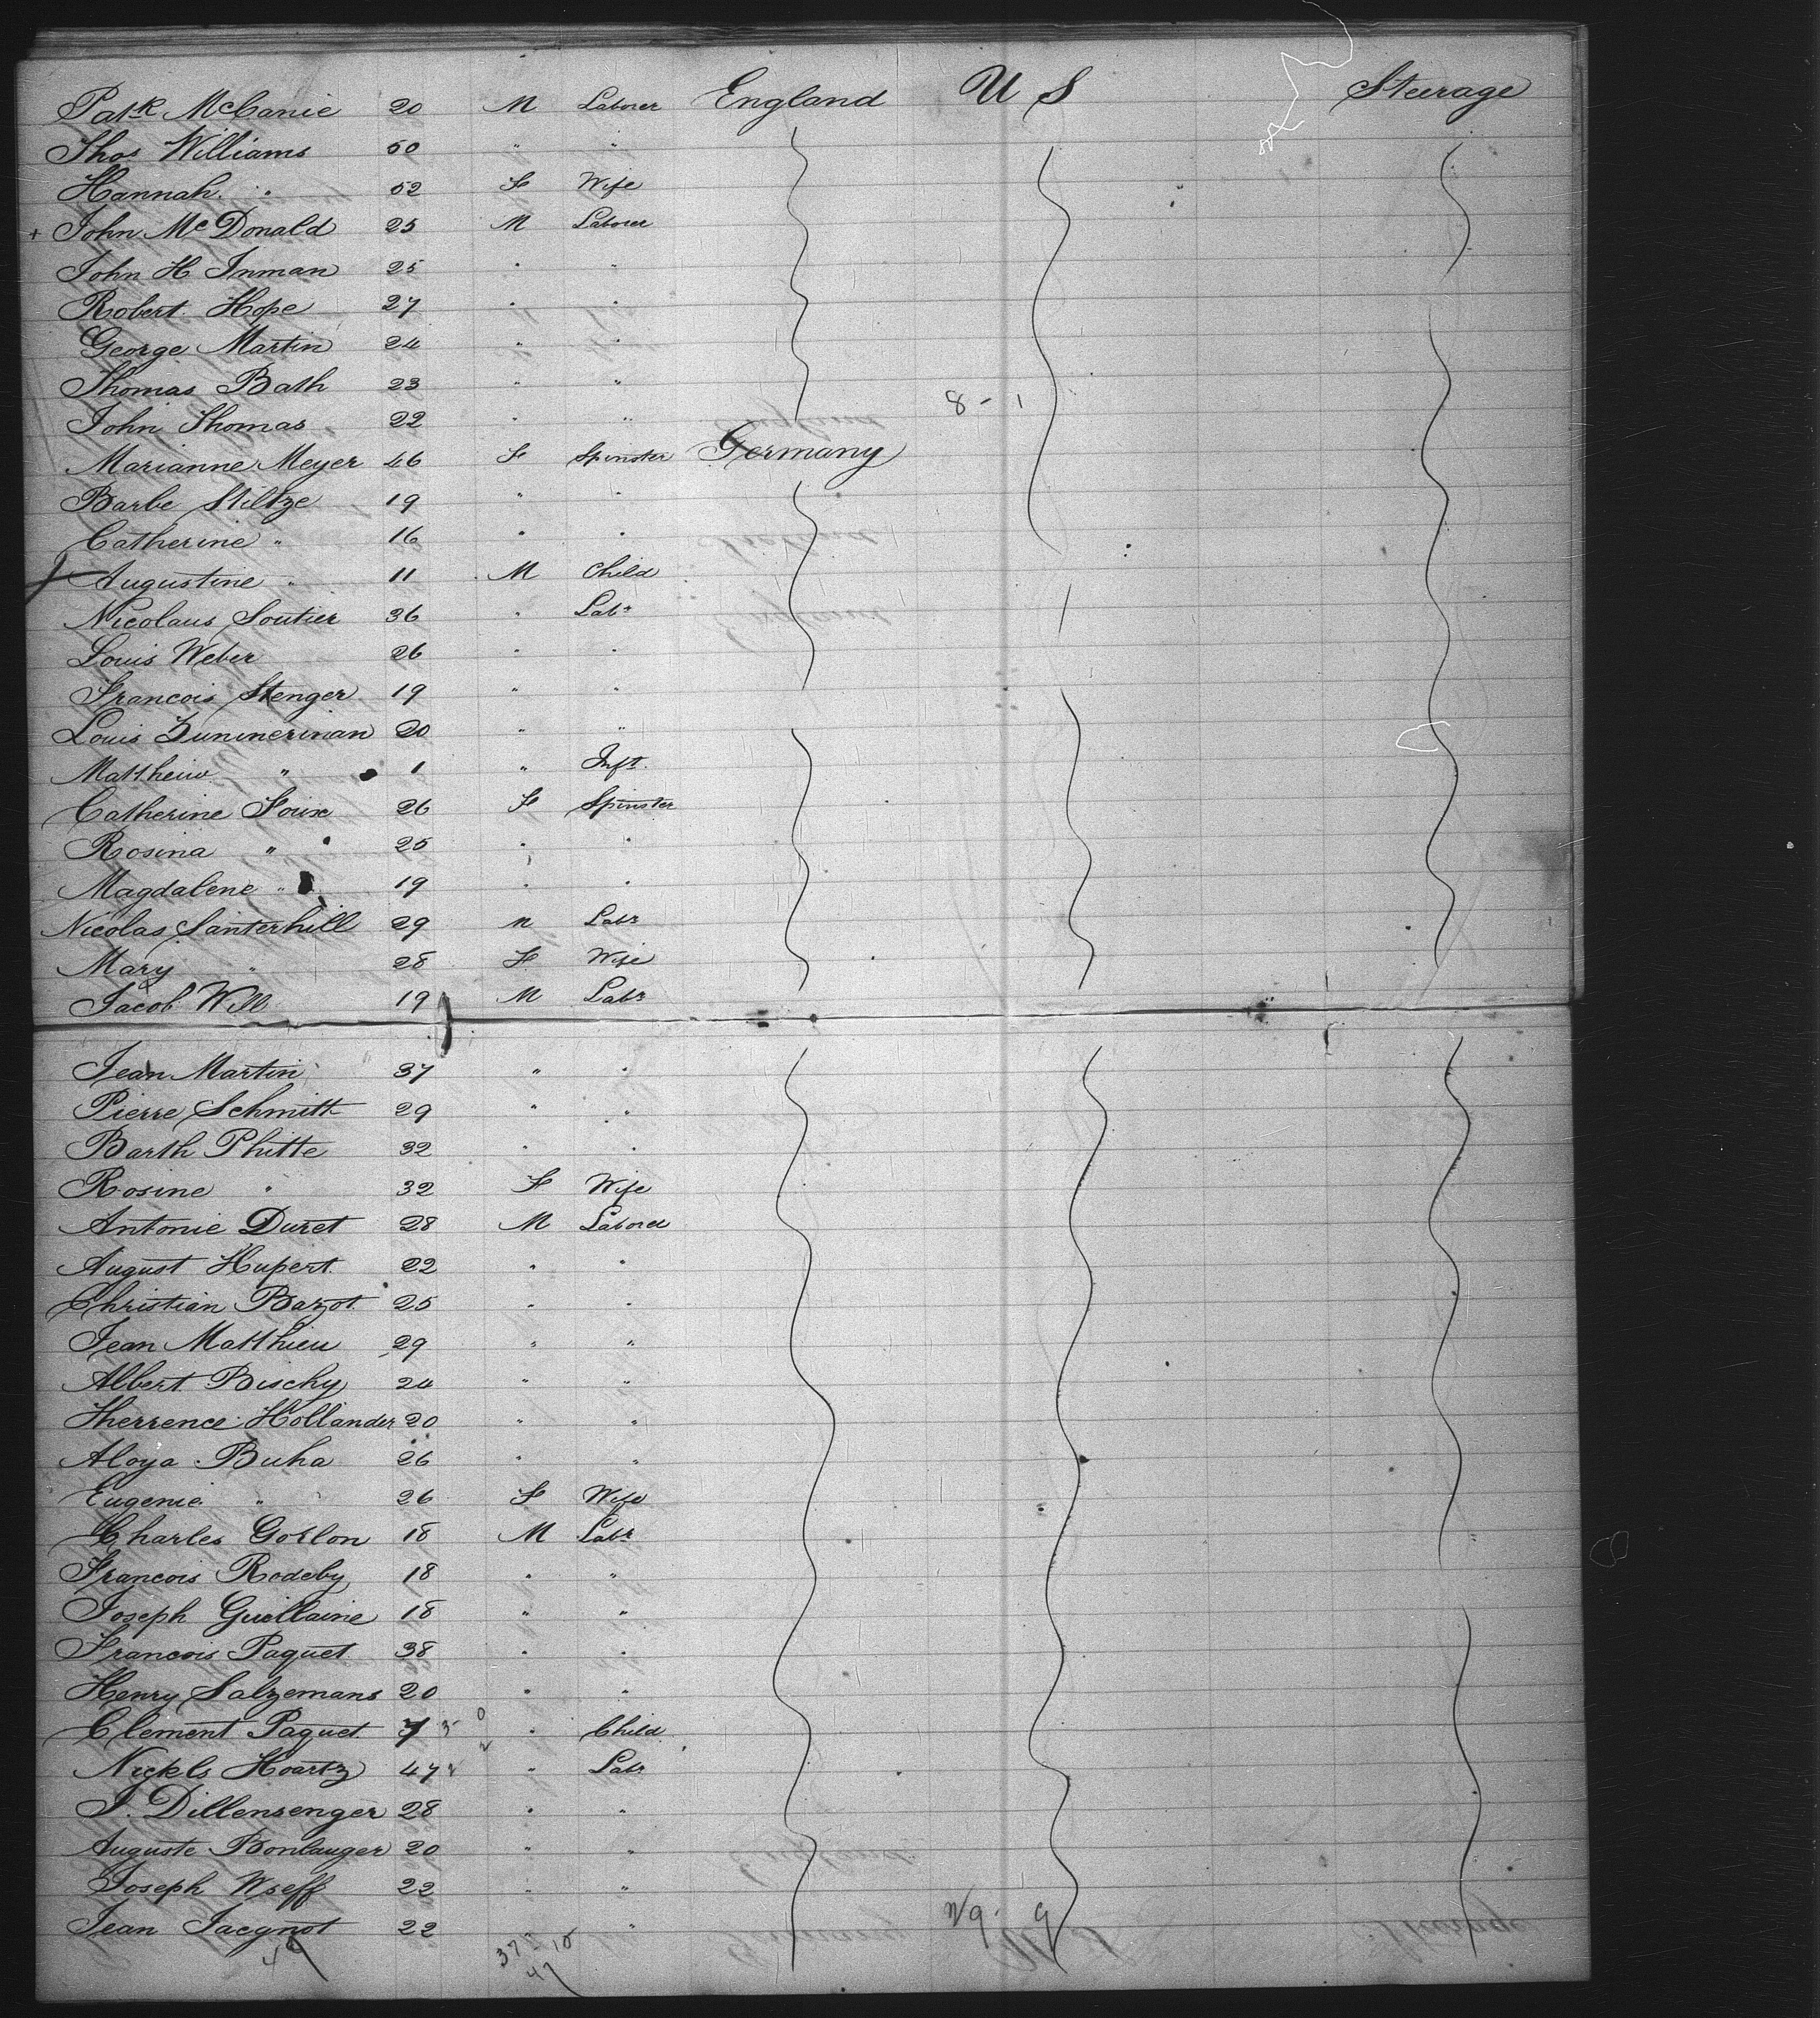 Patk McCanie 20 M Laborer England U S Steerage
Thos Williams 50 " "
Hannah " 52 F Wife
+ John McDonald 25 M Laborer
John H Inman 25 " "
Robert Hope 27 " "
George Martin 24 " "
Thomas Bath 23 " "
John Thomas 22 " " 8 - 1
Marianne Meyer 46 F Spinster Germany
Barbe Stiltze 19 " "
Catherine " 16 " "
Augustine " 11 M Child
Nicolaus Soutier 36 " Labr
Louis Weber 26 " "
Francois Stenger 19 " "
Louis Zummerman 20 " "
Mattheiw " 1 " Inft.
Catherine Foux 26 F Spinster
Rosina " 25 " "
Magdalene " 19 " "
Nicolas Santerhill 29 M Labr
Mary " 28 F Wife
Jacob Will 19 M Labr
Jean Martin 37 " "
Pierre Schmitt 29 " "
Barth Phitte 32 " "
Rosine " 32 F Wife
Antonie Duret 28 M Laborer
August Hupert 22 " "
Christian Bazot 25 " "
Jean Matthieu 29 " "
Albert Bischy 24 " "
Therrence Hollander 20 " "
Aloya Buha 26 " "
Eugenie " 26 F Wife
Charles Gorlon 18 M Labr
Francois Rodeby 18 " "
Joseph Guillaine 18 " "
Francois Paquet 38 " "
Henry Salzemans 20 " "
Clement Paquet 7 " Child
Nickls Hoartz 47 " Labr
J. Dillensenger 28 " "
Auguste Bonlauger 20 " "
Joseph Wseff 22 " "
Jean Jacgnot 22 " "
37 10
47